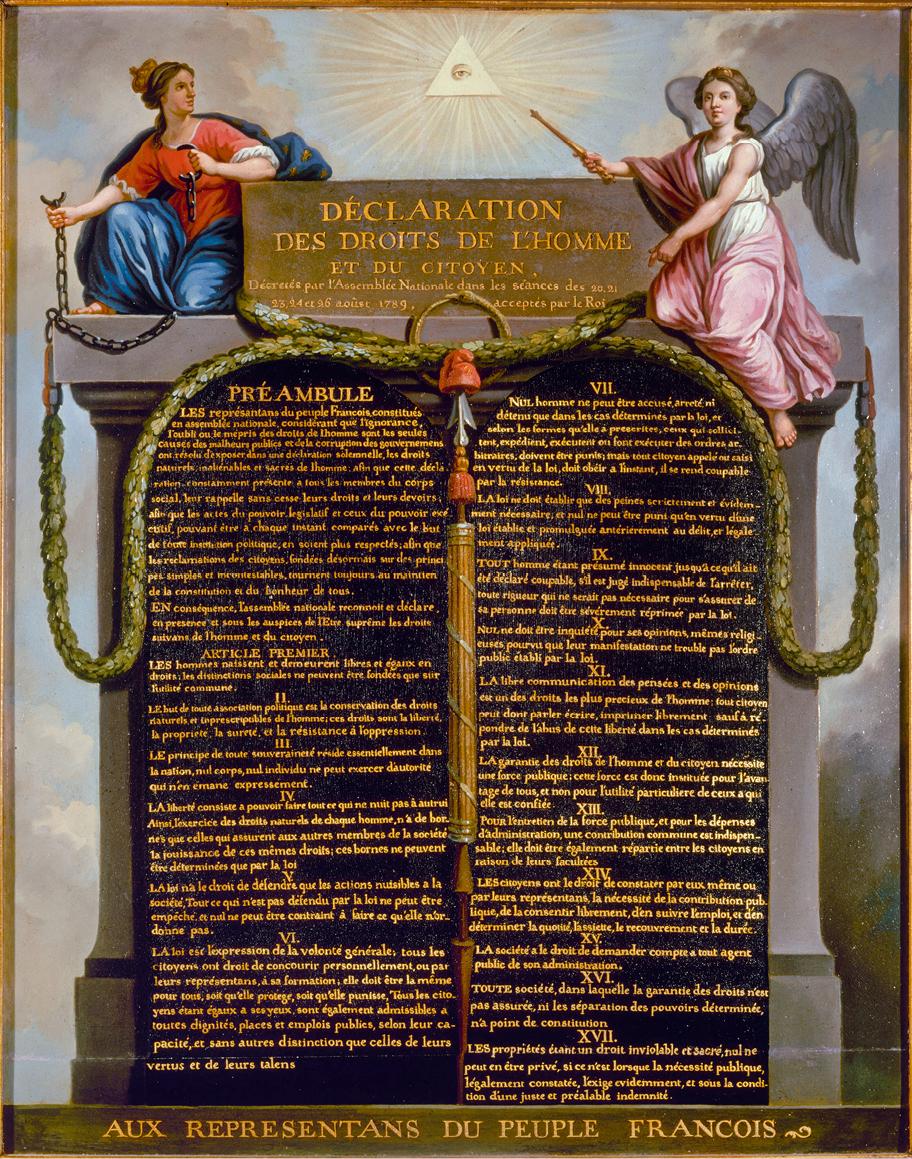 DÉCLARATION
DES DROITS DE L'HOMME
ET DU CITOYEN,
Décretés par l'Assemblée Nationale dans les séances des 20, 21
23, 24 et 26 aoûst 1789, acceptés par le Roi
PRÉAMBULE
LES représantans du peuple Francois, constitués
en assemblée nationale, considérant que l'ignorance,
l'oubli ou le mépris des droits de l'homme sont les seules
causes des malheurs publics et de la corruption des gouvernemens
ont résolu d'exposer dans une déclaration solemnelle, les droits
naturels, inaliénables et sacrés de l'homme; afin que cette décla
ration, constamment présente a tous les membres du corps
social, leur rappelle sans cesse leurs droits et leurs devoirs,
afin que les actes du pouvoir legislatif et ceux du pouvoir exé
cutif, pouvant être à chaque instant comparés avec le but
de toute institution politique, en soient plus respectés; afin que
les reclamations des citoyens, fondées désormais sur des princi
pes simples et incontestables, tournent toujours au maintien
de la constitution et du bonheur de tous.
EN conséquence, l'assemblée nationale reconnoit et déclare,
en presence et sous les auspices de l'Etre suprême les droits
suivans de l'homme et du citoyen.
ARTICLE PREMIER.
LES hommes naissent et demeurent libres et égaux en
droits; les distinctions sociales ne peuvent être fondées que sur
l'utilité commune.
II.
LE but de toute association politique est la conservation des droits
naturels et inprescriptibles de l'homme; ces droits sont la liberté,
la propriété, la sureté, et la résistance à l'oppression.
III.
LE principe de toute souveraineté réside essentiellement dans
la nation, nul corps, nul individu ne peut exercer d'autorité
qui n'en emane expressement.
IV.
LA liberté consiste a pouvoir faire tout ce qui ne nuit pas à autrui
Ainsi, l'exercice des droits naturels de chaque homme, n'a de bor-
nes que celles qui assurent aux autres membres de la société
la jouissance de ces mêmes droits; ces bornes ne peuvent
être déterminées que par la loi
V.
LA loi n'a le droit de défendre que les actions nuisibles a la
société, Tout ce qui n'est pas défendu par la loi ne peut être
empêché, et nul ne peut être contraint à faire ce qu'elle n'or-
donne pas.
VI.
LA loi est l'expression de la volonté générale; tous les
citoyens ont droit de concourir personnellement, ou par
leurs représentans, à sa formation; elle doit être la même
pour tous, soit qu'elle protege, soit qu'elle punisse, Tous les cito-
yens étant égaux a ses yeux, sont également admissibles à
toutes dignités, places et emplois publics, selon leur ca-
pacité, et sans autres distinction que celles de leurs
vertus et de leurs talens
VII.
NUL homme ne peut être accusé, arreté, ni
détenu que dans les cas déterminés par la loi, et
selon les formes qu'elle a prescrites, ceux qui sollici-
tent, expédient, exécutent ou font exécuter des ordres ar-
bitraires, doivent être punis; mais tout citoyen appelé ou saisi
en vertu de la loi, doit obéir a l'instant, il se rend coupable
par la résistance.
VIII.
LA loi ne doit établir que des peines strictement et évidem-
ment nécessaire, et nul ne peut être puni qu'en vertu d'une
loi établie et promulguée antérierement au délit, et légale-
ment appliquée.
IX.
TOUT homme étant présumé innocent jusqu'a ce qu'il ait
été déclaré coupable, s'il est jugé indispensable de l'arrêter,
toute rigueur qui ne serait pas nécessaire pour s'assurer de
sa personne doit être sévèrement réprimée par la loi.
X.
NUL ne doit être inquiété pour ses opinions, mêmes religi-
euses pourvu que leur manifestation ne trouble pas l'ordre
public établi par la loi.
XI.
LA libre communication des pensées et des opinions
est un des droits les plus precieux de l'homme: tout citoyen
peut dont parler écrire, imprimer librement sauf à ré
pondre de l'abus de cette liberté dans les cas déterminés
par la loi.
XII.
LA garantie des droits de l'homme et du citoyen nécessite
une force publique; cette force est donc instituée pour l'avan
tage de tous, et non pour l'utilité particuliere de ceux a qui
elle est confiée.
XIII.
POUR l'entretien de la force publique, et pour les dépenses
d'administration, une contribution commune est indispen-
sable; elle doit être également répartie entre les citoyens en
raison de leurs facultées
XIV.
LES citoyens ont le droit de constater par eux même ou
par leurs représentans, la nécessité de la contribution pub-
lique, de la consentir librement, d'en suivre l'emploi, et d'en
déterminer la quotité, l'assiette, le recouvrement et la durée.
XV.
LA société a le droit de demander compte a tout agent
public de son administration.
XVI.
TOUTE société, dans laquelle la garantie des droits n'est
pas assurée, ni les séparation des pouvoirs déterminée,
n'a point de constitution
XVII.
LES propriétés étant un droit inviolable et sacré, nul ne
peut en être privé, si ce n'est lorsque la nécessité publique,
légalement constatée, l'exige evidemment, et sous la condi-
tion d'une juste et préalable indemnité.
AUX REPRESENTANS DU PEUPLE FRANCOIS